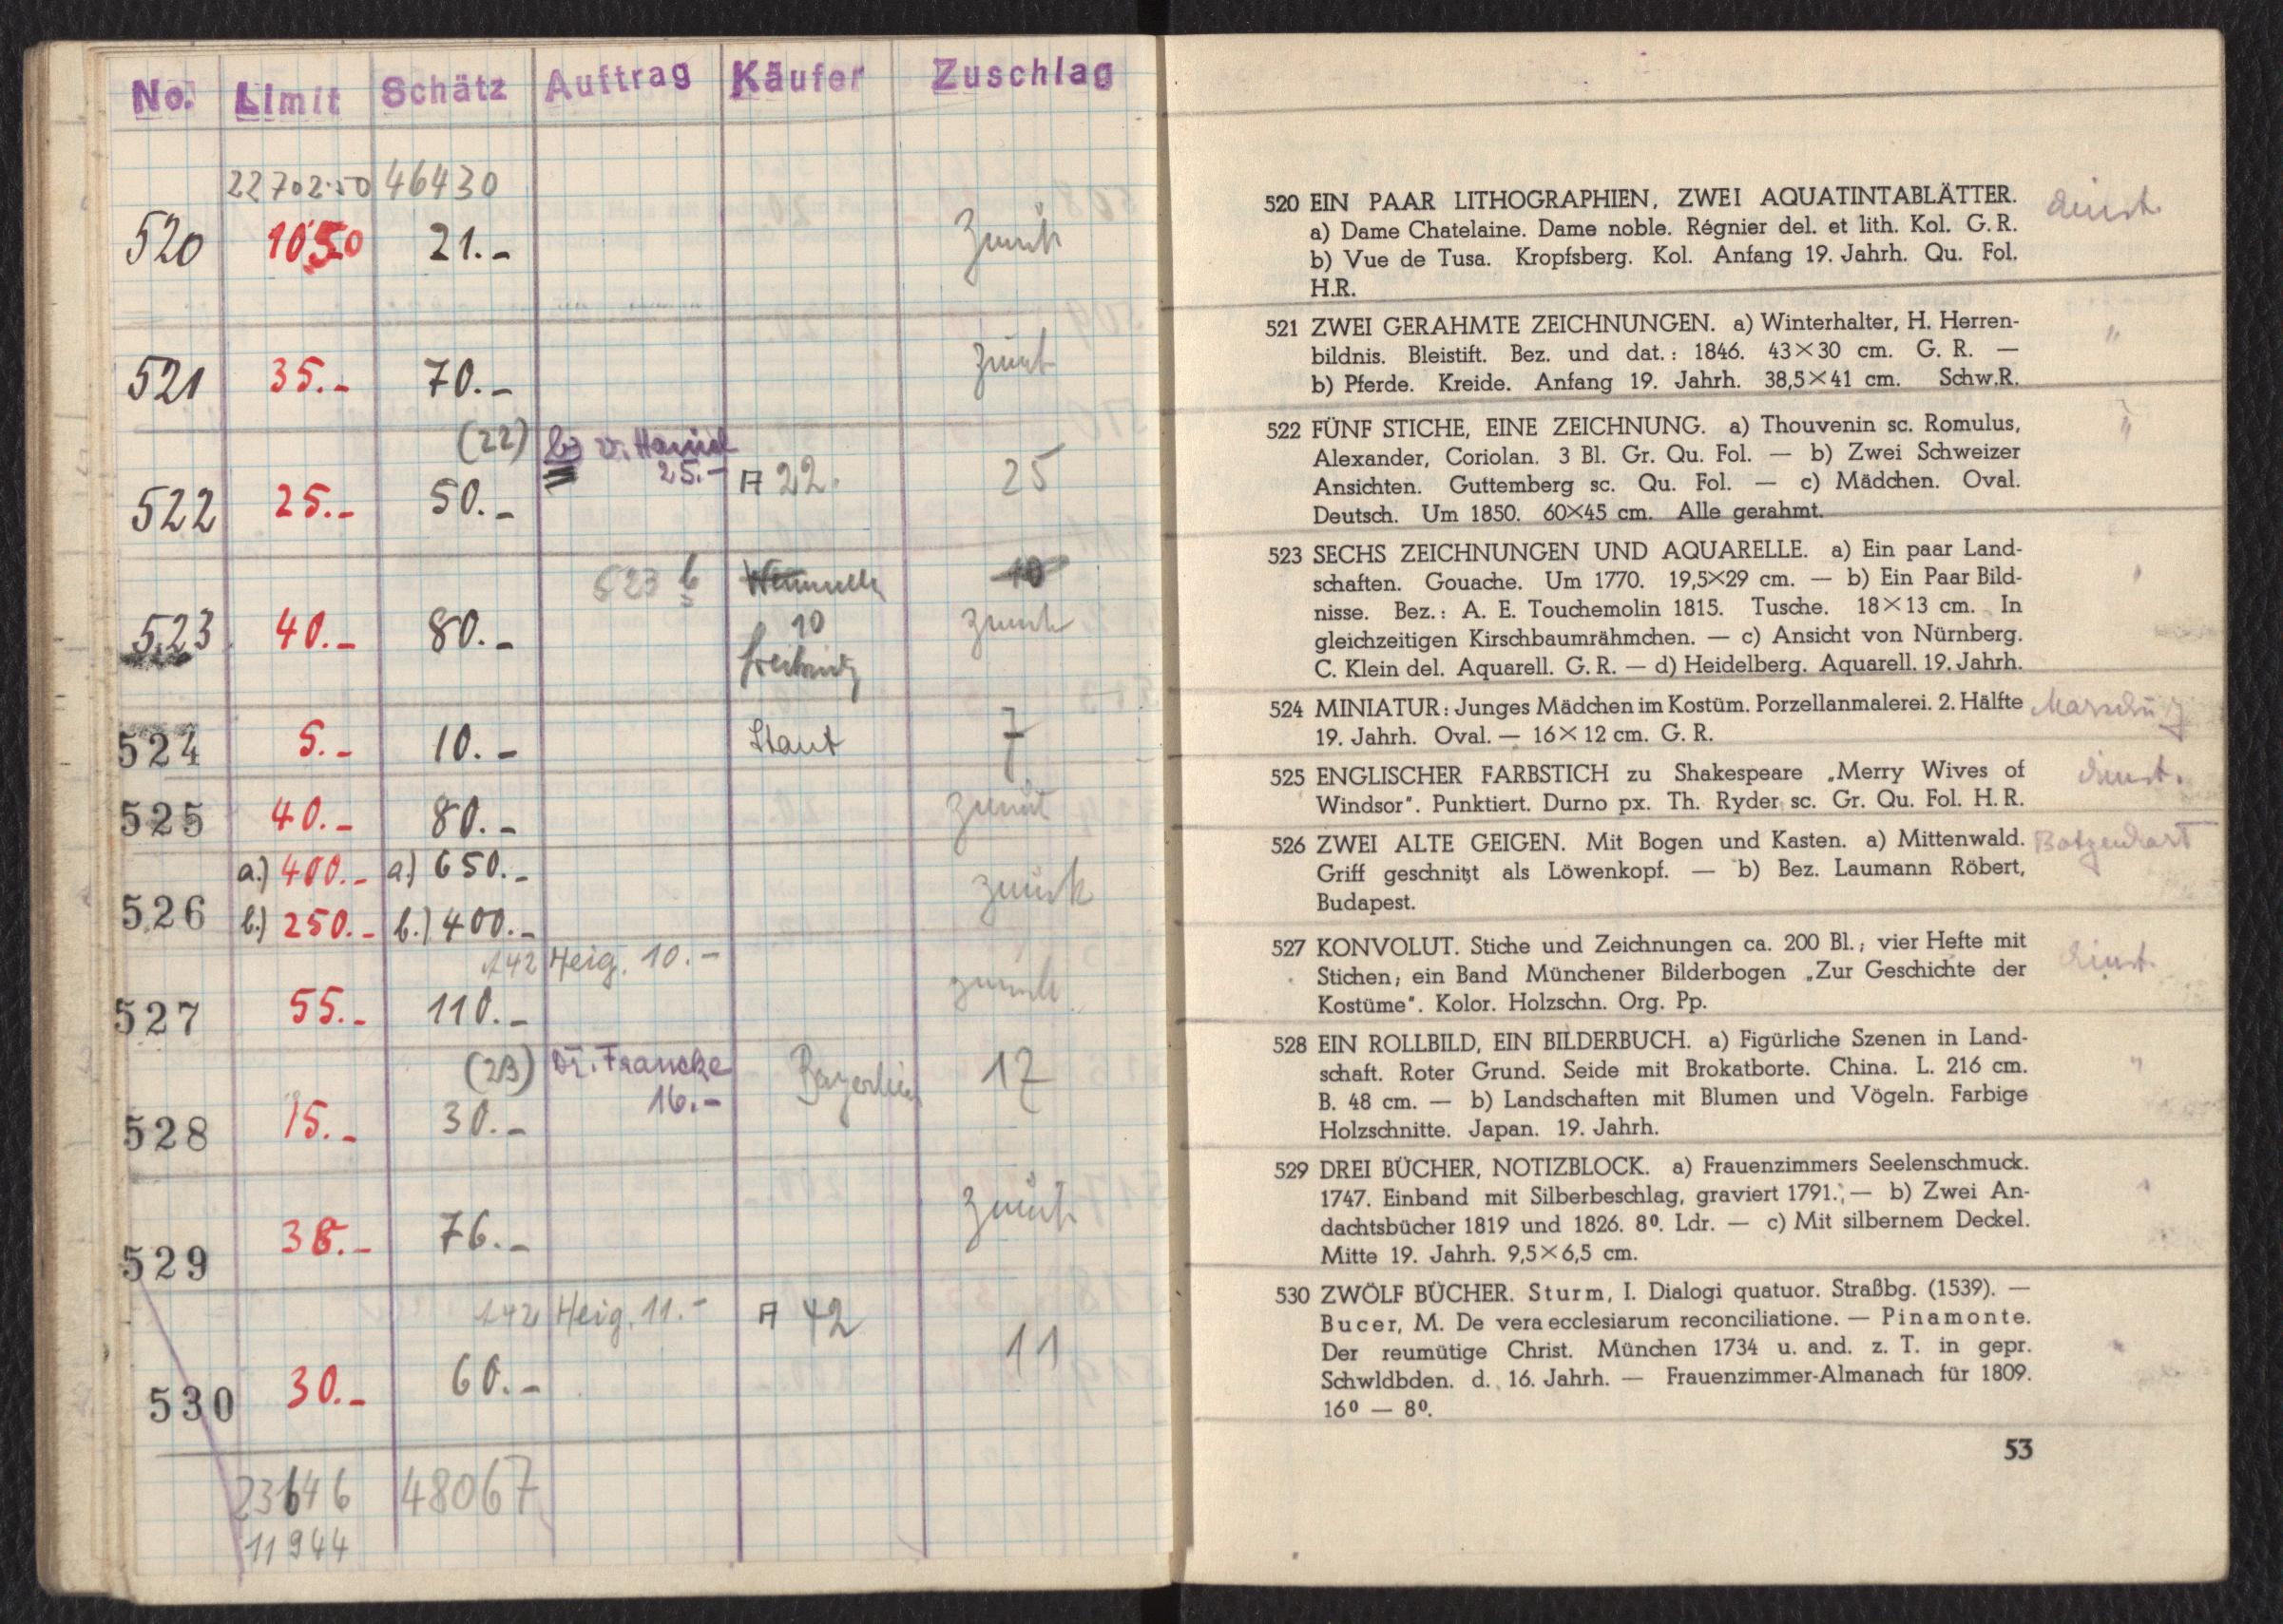 No. Limit Schätz Auftrag Käufer Zuschlag
22702.50 46430
520 10.50 21.- zurück
521 35.- 70.- zurück
(22) b) v. Hamid 25.-
522 25.- 50.- A 22. 25
523 b 10
523 40.- 80.- 10 zurück
524 5.- 10.- Staut 7
525 40.- 80.- zurück
a.) 400.- a.) 650.-
526 zurück
b.) 250.- b.) 400.-
142 Heig. 10.-
527 55.- 110.- zurück
(23) Dr. Francke 16.-
528 15.- 30.- 17
529 38.- 76.- zurück
142 Heig. 11.- A 42
530 30.- 60.- 11
23646 48067
11944
520 EIN PAAR LITHOGRAPHIEN, ZWEI AQUATINTABLÄTTER.
a) Dame Chatelaine. Dame noble. Régnier del. et lith. Kol. G. R.
b) Vue de Tusa. Kropfsberg. Kol. Anfang 19. Jahrh. Qu. Fol.
H.R.
521 ZWEI GERAHMTE ZEICHNUNGEN. a) Winterhalter, H. Herren- "
bildnis. Bleistift. Bez. und dat.: 1846. 43×30 cm. G. R. —
b) Pferde. Kreide. Anfang 19. Jahrh. 38,5×41 cm. Schw.R.
522 FÜNF STICHE, EINE ZEICHNUNG. a) Thouvenin sc. Romulus, "
Alexander, Coriolan. 3 Bl. Gr. Qu. Fol. — b) Zwei Schweizer
Ansichten. Guttemberg sc. Qu. Fol. — c) Mädchen. Oval.
Deutsch. Um 1850. 60×45 cm. Alle gerahmt.
523 SECHS ZEICHNUNGEN UND AQUARELLE. a) Ein paar Land-
schaften. Gouache. Um 1770. 19,5×29 cm. — b) Ein Paar Bild-
nisse. Bez.: A. E. Touchemolin 1815. Tusche. 18×13 cm. In
gleichzeitigen Kirschbaumrähmchen. — c) Ansicht von Nürnberg.
C. Klein del. Aquarell. G. R. — d) Heidelberg. Aquarell. 19. Jahrh.
524 MINIATUR: Junges Mädchen im Kostüm. Porzellanmalerei. 2. Hälfte
19. Jahrh. Oval. — 16×12 cm. G. R.
525 ENGLISCHER FARBSTICH zu Shakespeare „Merry Wives of
Windsor". Punktiert. Durno px. Th. Ryder sc. Gr. Qu. Fol. H. R.
526 ZWEI ALTE GEIGEN. Mit Bogen und Kasten. a) Mittenwald. Botzenhart
Griff geschnitzt als Löwenkopf. — b) Bez. Laumann Röbert,
Budapest.
527 KONVOLUT. Stiche und Zeichnungen ca. 200 Bl.; vier Hefte mit
Stichen; ein Band Münchener Bilderbogen „Zur Geschichte der
Kostüme". Kolor. Holzschn. Org. Pp.
528 EIN ROLLBILD, EIN BILDERBUCH. a) Figürliche Szenen in Land- "
schaft. Roter Grund. Seide mit Brokatborte. China. L. 216 cm.
B. 48 cm. — b) Landschaften mit Blumen und Vögeln. Farbige
Holzschnitte. Japan. 19. Jahrh.
529 DREI BÜCHER, NOTIZBLOCK. a) Frauenzimmers Seelenschmuck.
1747. Einband mit Silberbeschlag, graviert 1791. — b) Zwei An-
dachtsbücher 1819 und 1826. 8⁰. Ldr. — c) Mit silbernem Deckel.
Mitte 19. Jahrh. 9,5×6,5 cm.
530 ZWÖLF BÜCHER. Sturm, I. Dialogi quatuor. Straßbg. (1539). —
Bucer, M. De vera ecclesiarum reconciliatione. — Pinamonte.
Der reumütige Christ. München 1734 u. and. z. T. in gepr.
Schwldbden. d. 16. Jahrh. — Frauenzimmer-Almanach für 1809.
16⁰ — 8⁰.
53